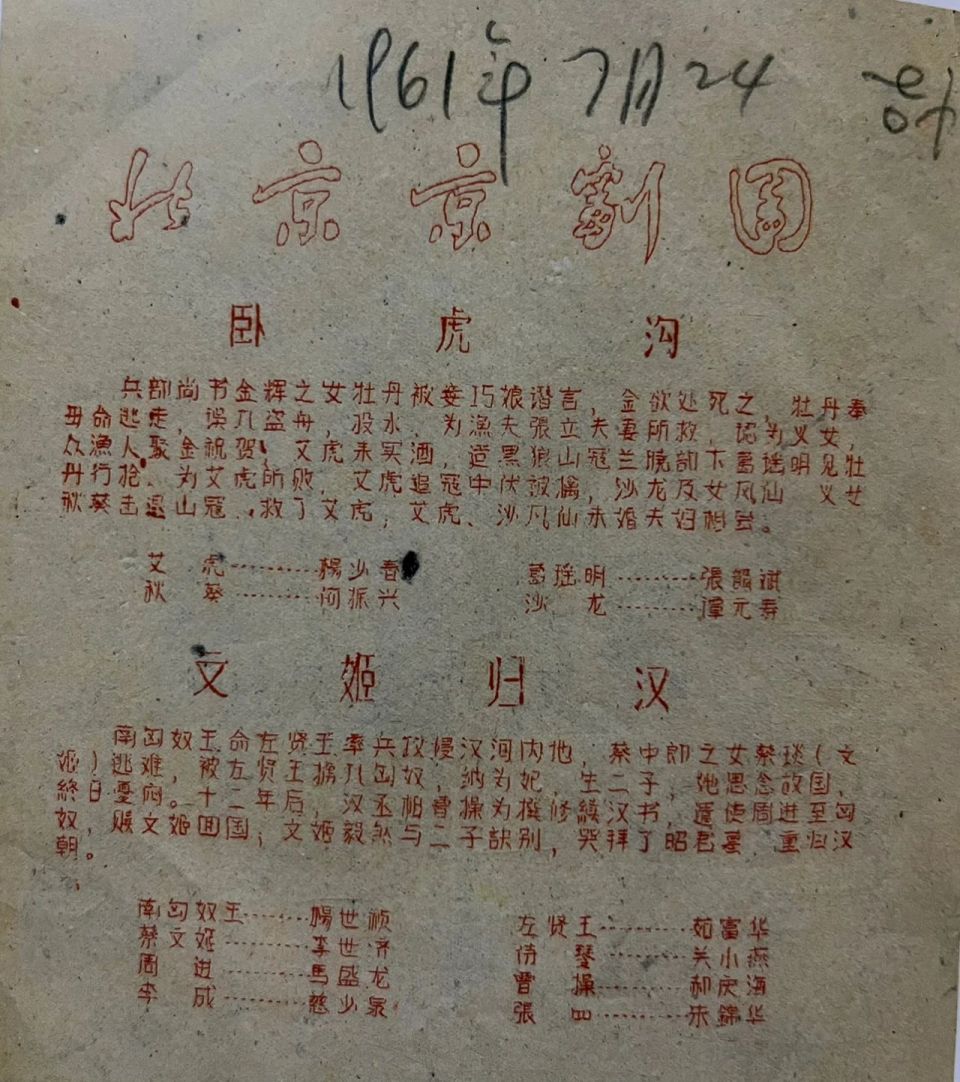 1961年7月24
北京京劇团
卧虎沟
兵部尚书金辉之女牡丹被妾巧娘谮言，金欲处死之，牡丹奉
母命逃走，误入盗舟，投水，为漁夫張立夫妻所救，認为义女，
众漁人聚金祝贺，艾虎来买酒，适黑狼山寇兰驍部下葛瑶明见牡
丹行抢，为艾虎所败，艾虎追寇中伏被擒，沙龙及女凤仙 义女
秋葵击退山寇，救了艾虎，艾虎、沙凤仙未婚夫妇相会。
艾虎………楊少春 葛瑶明………張韻斌
秋葵………何振兴 沙龙………譚元寿
文姬归汉
南匈奴王命左贤王率兵扰侵汉河内地，蔡中郎之女蔡琰（文
姬）逃难，被左贤王掳入匈奴，纳为妃，生二子，她思念故国，
終日憂闷。十二年后，汉丞相曹操为撰修續汉书，遣使周进至匈
奴，赎文姬回国，文姬毅然与二子訣别，哭拜了昭君墓，重归汉
朝。
南匈奴王………楊世桢 左贤王………茹富华
蔡文姬………李世济 侍琴………关小燕
周进………馬盛龙 曹操………郝庆海
李成………慈少泉 張四………朱錦华